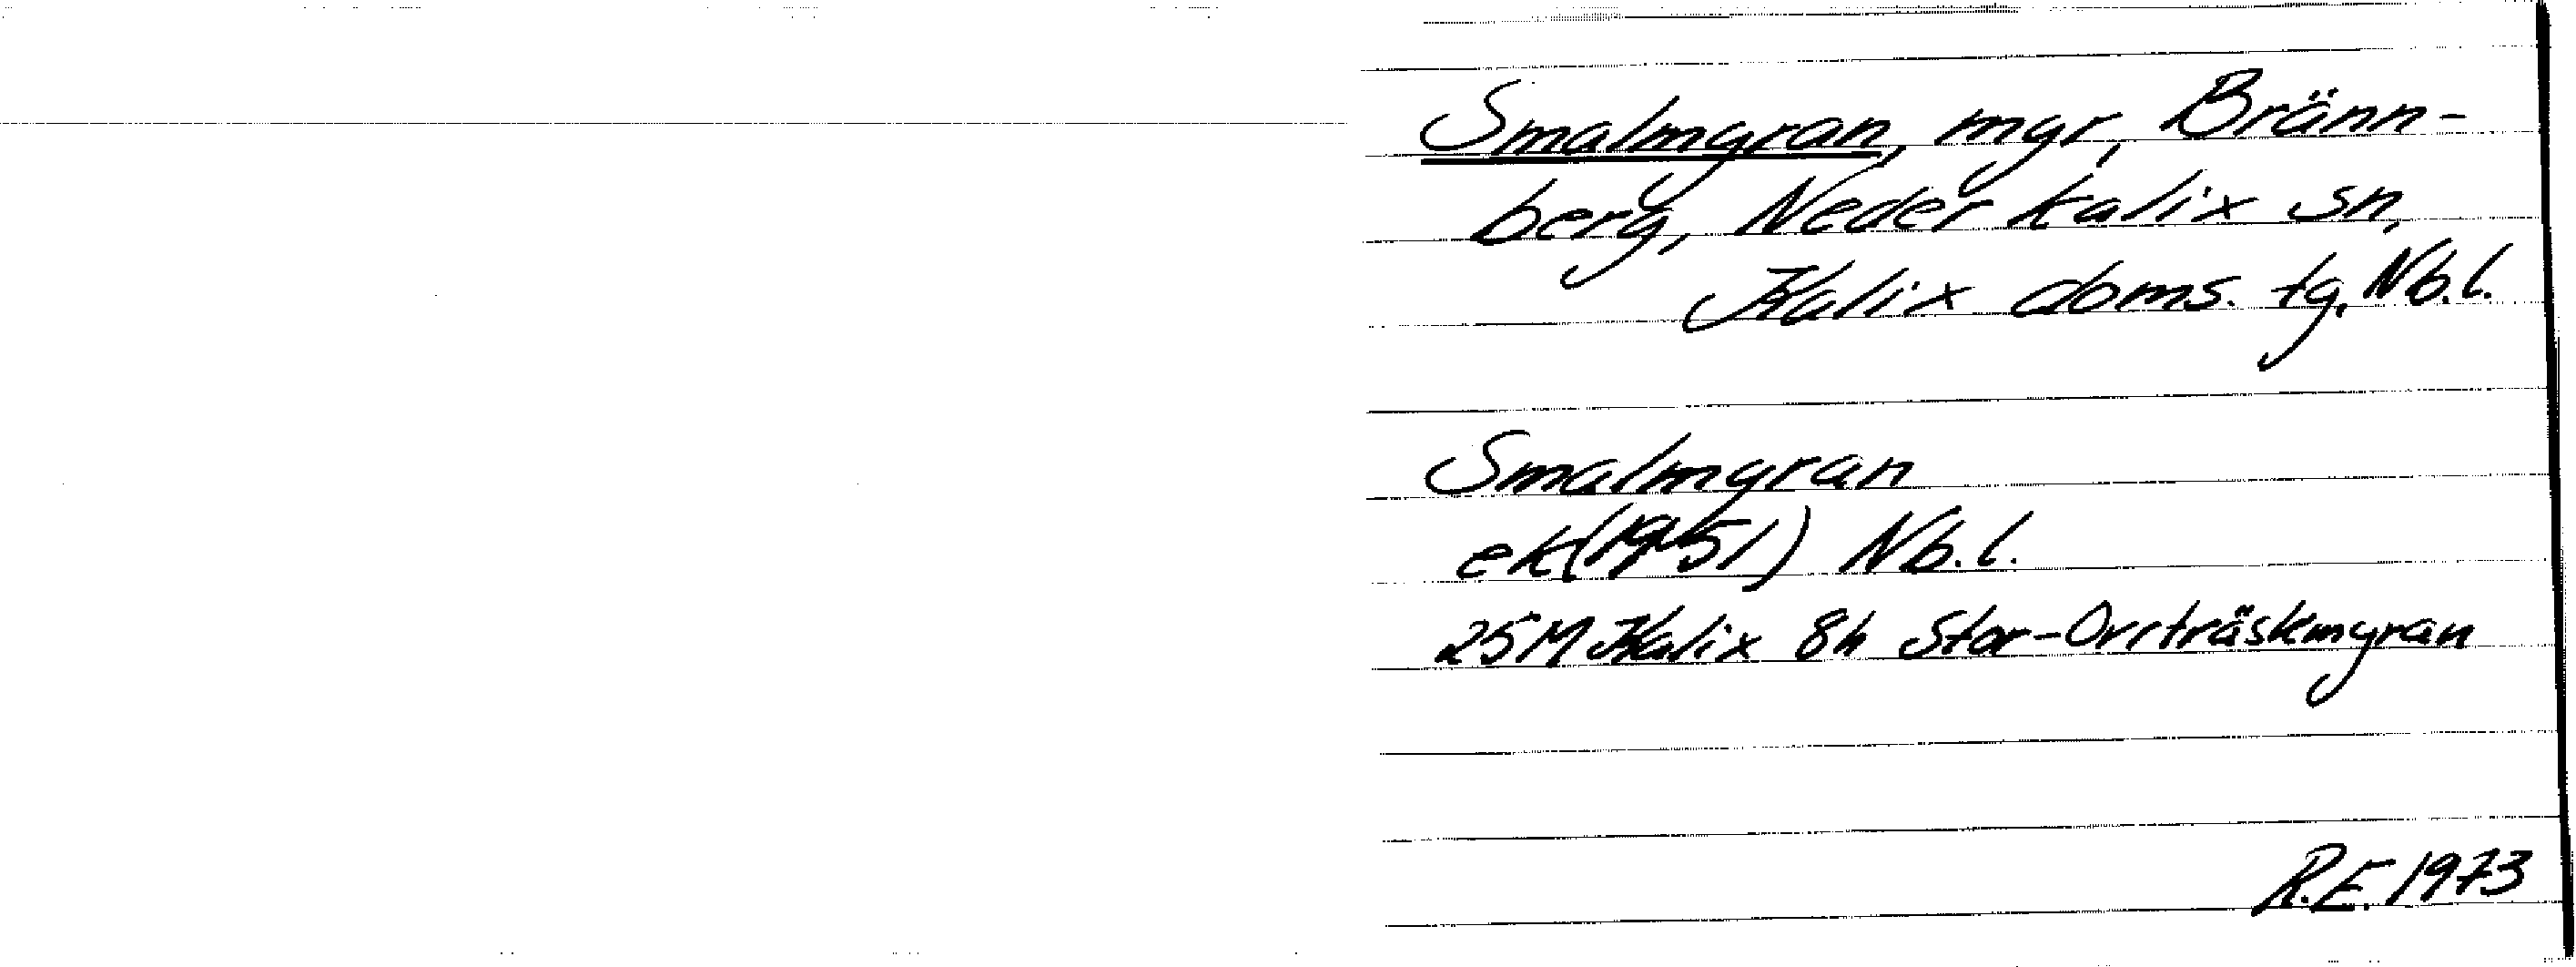 Smalmyran, myr, Bränn-
berg, Neder kalix sn,
Kalix doms. tg, Nb.l.
Smalmyran
ek(1951) Nb.l.
25M Kalix 8h Stor-Orrträskmyran
R.E. 1973